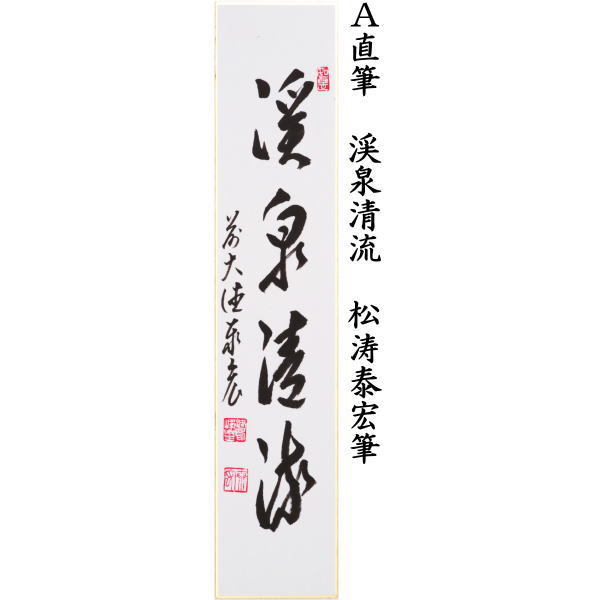 A直筆 渓泉清流 松涛泰宏筆
渓泉清流
前大徳泰宏